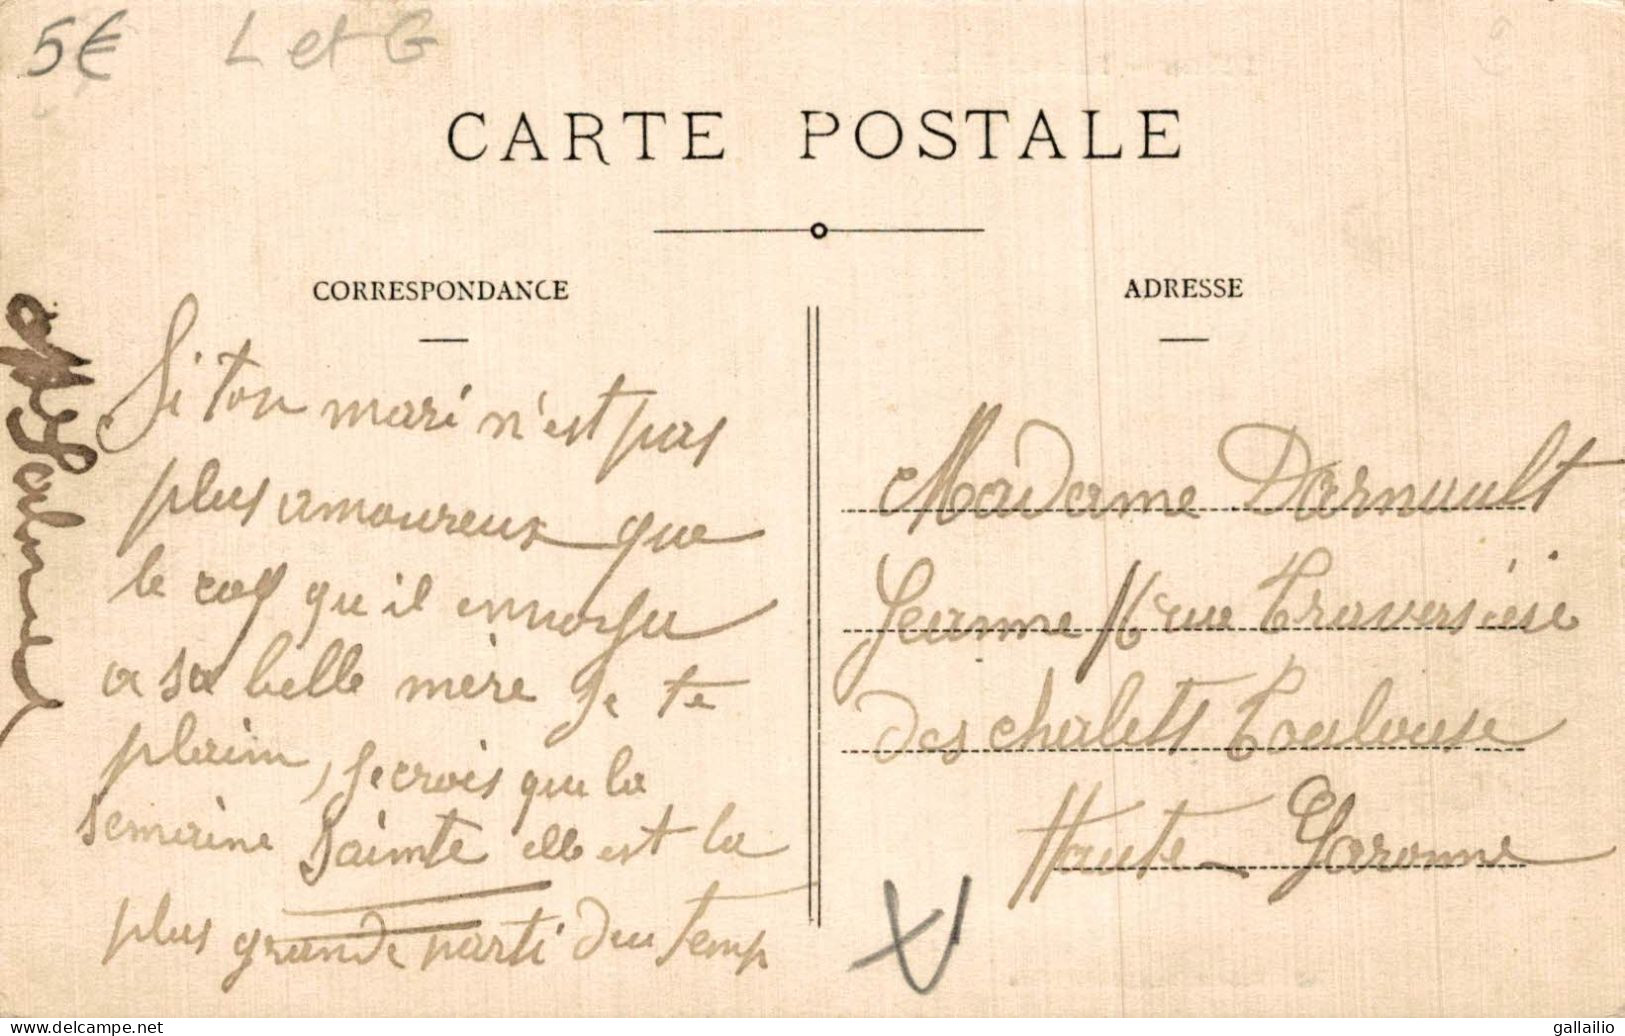 5€ L et G
CARTE POSTALE
CORRESPONDANCE
ADRESSE
Si ton mari n'est pas
plus amoureux que
le coq qu'il
a sa belle mère Je te
plain, Je crois que la
semaine Sainte elle est la
plus grande parti du Temp
Madame Darnault
Jeanne rue Traversière
des chalets Toulouse
Haute-Garonne
gallailio